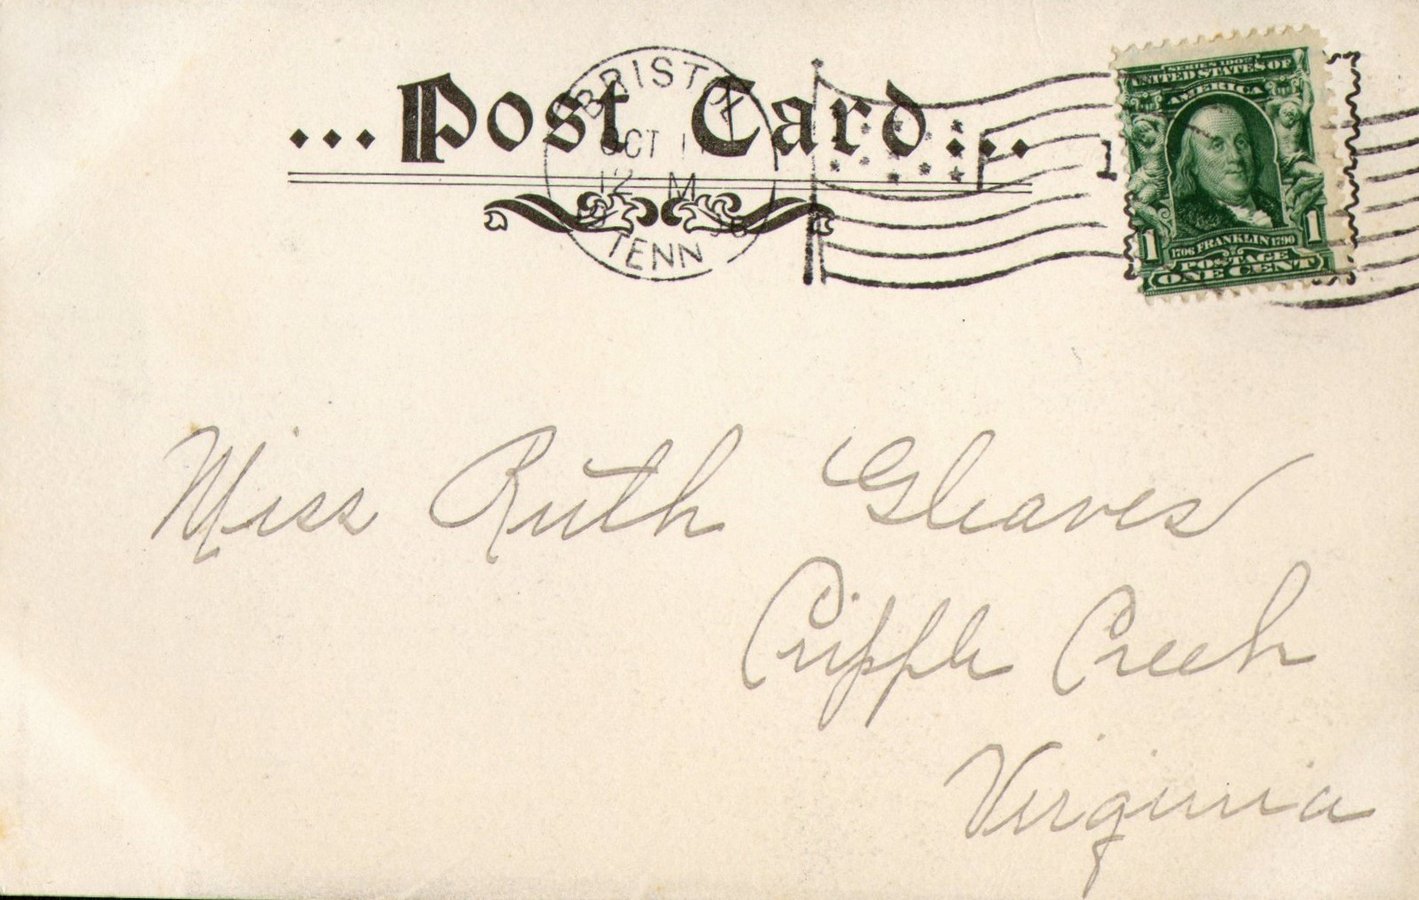 ... Post Card ...
BRISTOL
OCT 1
12 M
TENN
1
SERIES 1902
UNITED STATES OF
AMERICA
1706 FRANKLIN 1790
POSTAGE
1 1
ONE CENT
Miss Ruth Gleaves
Cripple Creek
Virginia